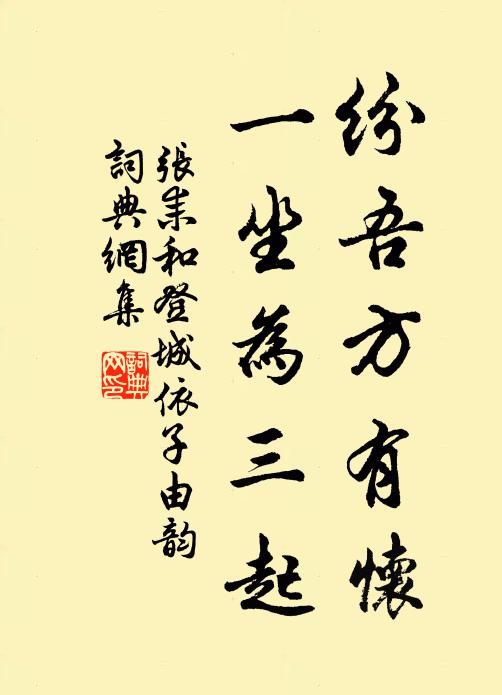 紛吾方有懷
一坐為三起
張耒和登城依子由韵
詞典網集
詞典
网印